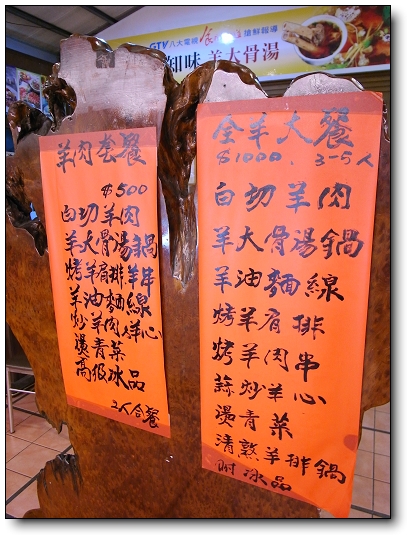 GTV八大電視 食 搶鮮報導
知味 羊大骨湯
羊肉套餐
$500
白切羊肉
羊大骨湯鍋
烤羊肩排.羊串
羊油麵線
炒羊肉.羊心
燙青菜
高級冰品
2人合餐
全羊大餐
$1000、3-5人
白切羊肉
羊大骨湯鍋
羊油麵線
烤羊肩排
烤羊肉串
蒜炒羊心
燙青菜
清熬羊排鍋
附冰品